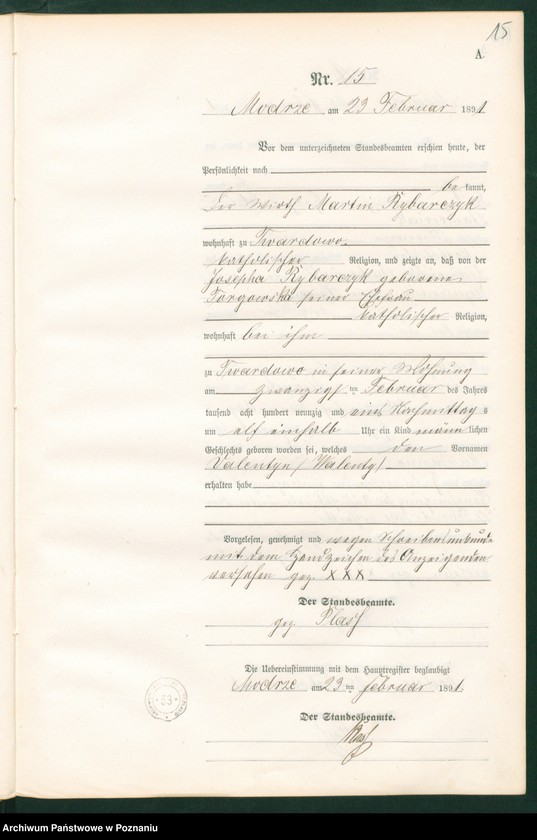 15
A.
Nr. 15
Modrze am 23 Februar 1891
Vor dem unterzeichneten Standesbeamten erschien heute, der
Persönlichkeit nach
be kannt,
der Wirth Martin Rybarczyk
wohnhaft zu Twardowo
katholischer Religion, und zeigte an, daß von der
Josepha Rybarczyk geborene
Targowski seiner Ehefrau
katholischer Religion,
wohnhaft bei ihm
zu Twardowo in seiner Wohnung
am zwanzigsten Februar des Jahres
tausend acht hundert neunzig und eins Nachmittags
um elf einhalb Uhr ein Kind männlichen
Geschlechts geboren worden sei, welches den Vornamen
Valentyn (Walenty)
erhalten habe
Vorgelesen, genehmigt und wegen Schreibensunkunde
mit dem Handzeichen des Anzeigenden
versehen gez. XXX
Der Standesbeamte.
gez.
Die Uebereinstimmung mit dem Hauptregister beglaubigt
Modrze am 23 ten Februar 1891.
Der Standesbeamte.
53
Archiwum Państwowe w Poznaniu